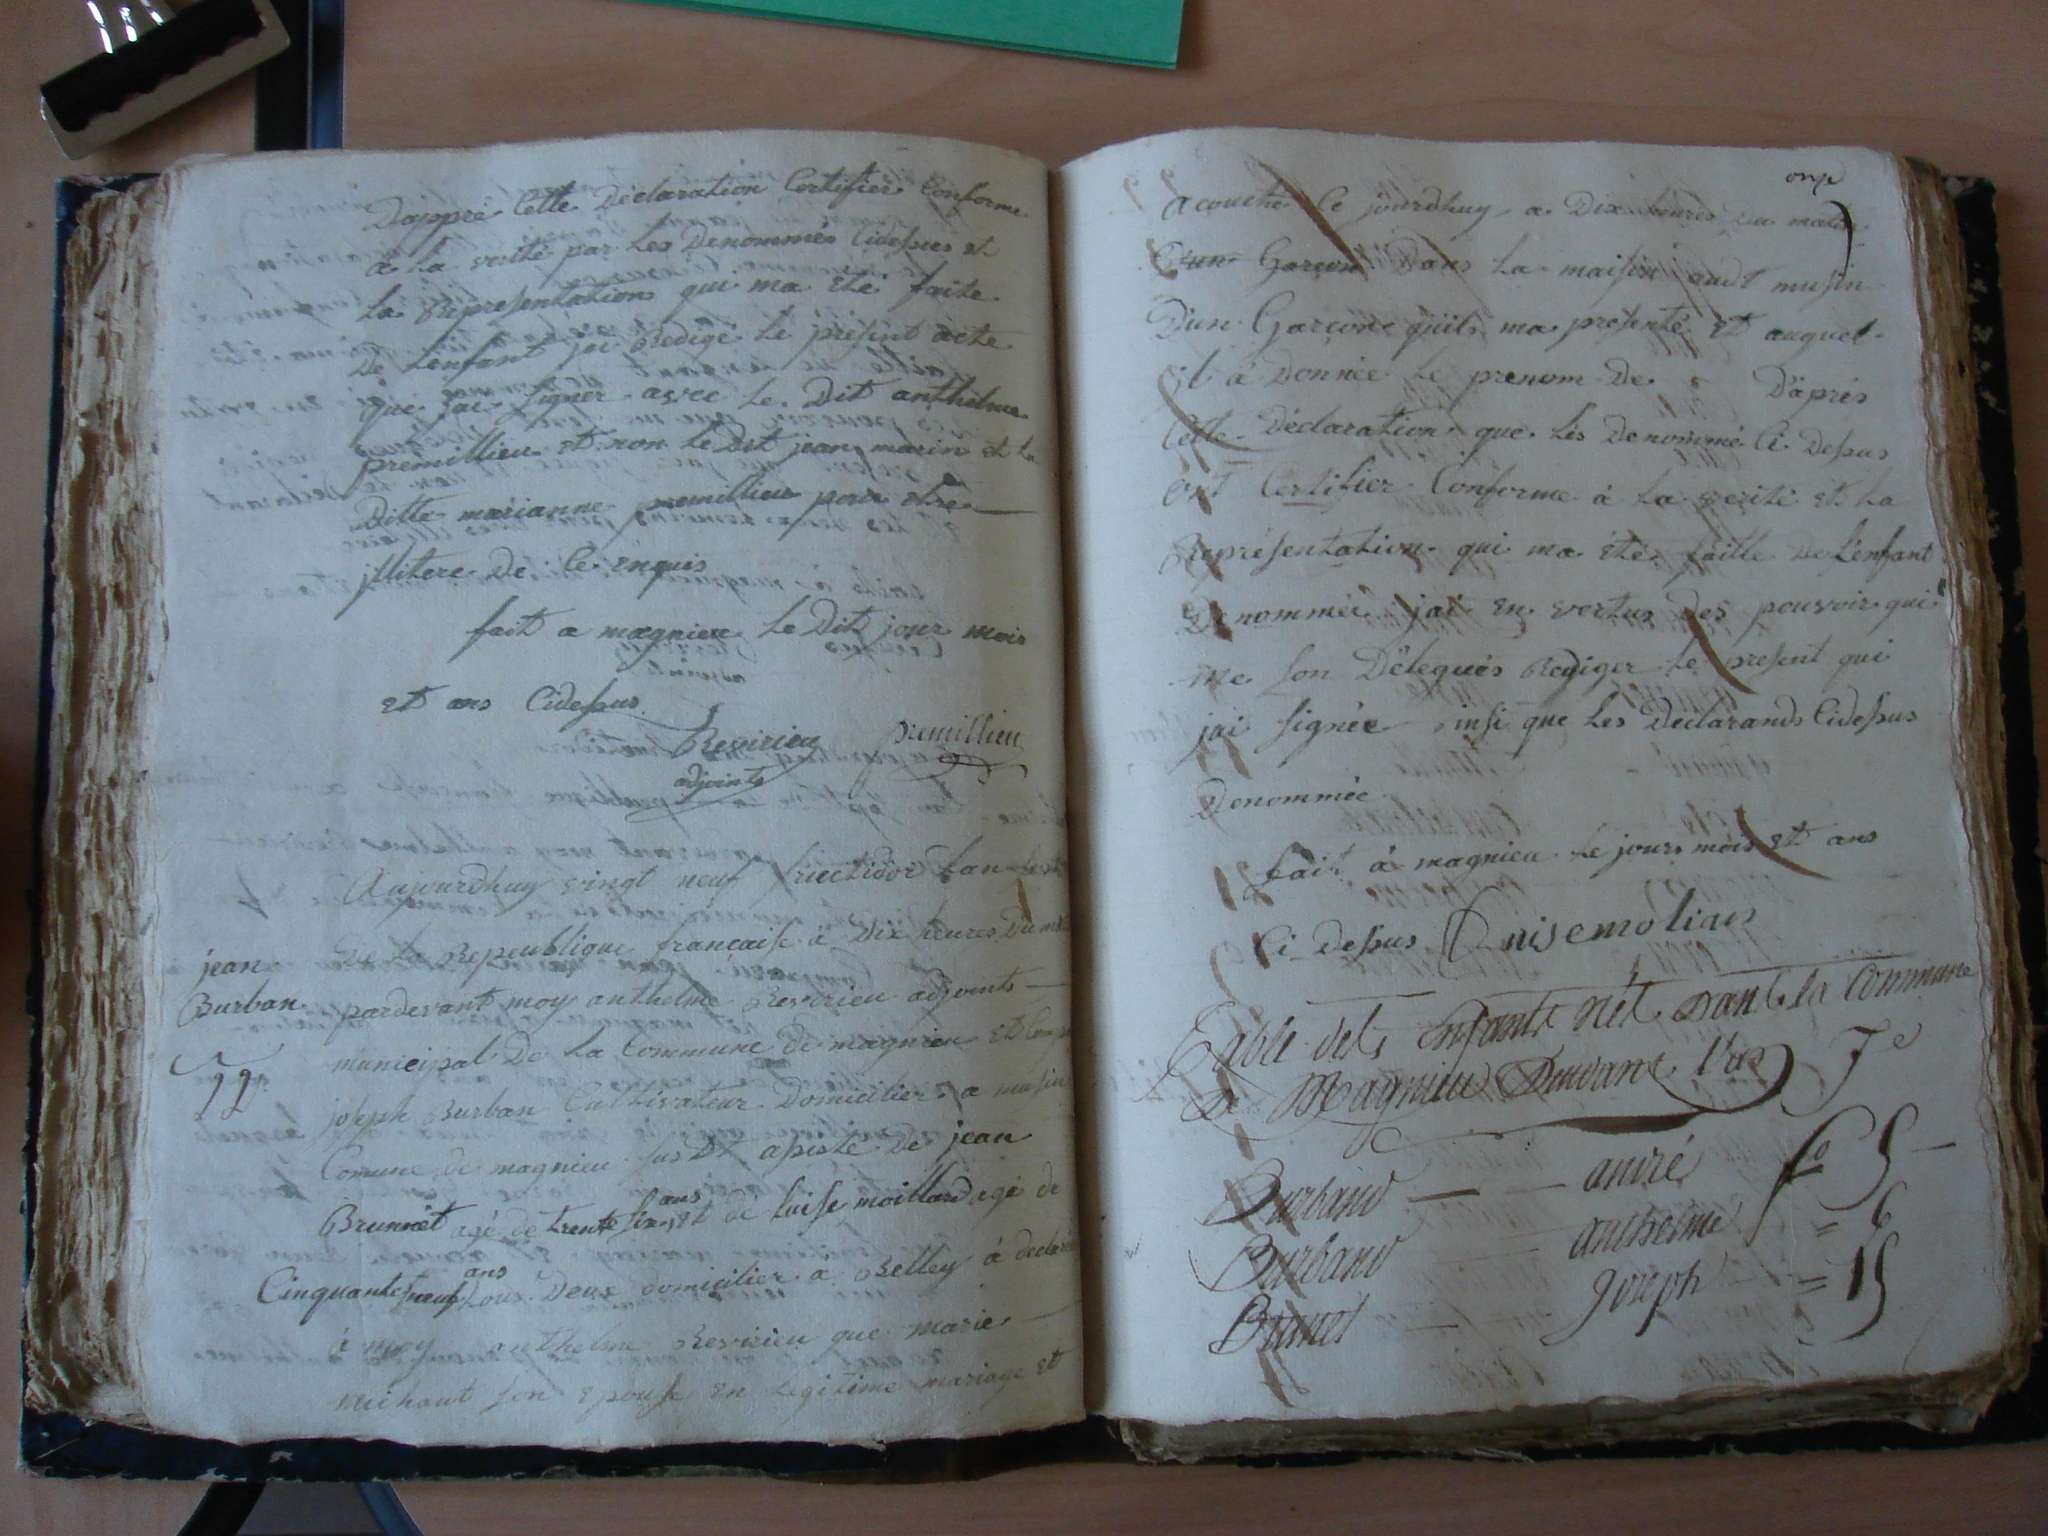 Dapprè Cette Déclaration Certifier Conforme
a la verité par les Denommés Cidessus et
la representation qui ma été faite
De Lenfant jai Redigé le présent acte
que jai signer avec le Dit anthelme
premillieu et non le Dit jean marin et la
Ditte marianne premillieu pour etre
jllitere De Ce enquis
fait a magnieu le Dit jour mois
et ans Cidessus
Revirieu premillieu
adjoints
Aujourdhuy vingt neuf fructidor Lan
jean
De la Republique francaise à Dix heures Du
Burban
pardevant moy anthelme Revirieu adjoints
municipal De la Commune de magnieu et
joseph Burban Cultivateur Domicilier a musin
Comune de magnieu susdt assisté de jean
Brunnet agé de trente six ans et de luise moillard agé de
Cinquante neuf ans tous Deux domicilier a Belley à declaré
à moy anthelme Revirieu que marie
michaut son Epouse en Legitime mariage et
onze
acouché Ce jourdhuy a Dix heures du matin
D'un Garcon Dans la maison audt musin
D'un Garcon quils ma presenté et auquel
il à Donnée le prenom De D'aprés
Cette Déclaration que Les Denommé Ci Dessus
ont Certifier Conforme à la verité et la
Représentation qui ma été faitte de Lenfant
Denommée jai en vertus Des pouvoir qui
me son Délequés Rediger le present qui
jai signée insi que Les Declarands Cidessus
Denommée
fait à magnieu le jours mois et ans
Ci Dessus
Table dets Enfants Nét Dant la Commune
De Magnieu Duwant l'an 7e
Burband — — andré fo 5 —
Burband — anthelme = 6
Brunet — Joseph = 15